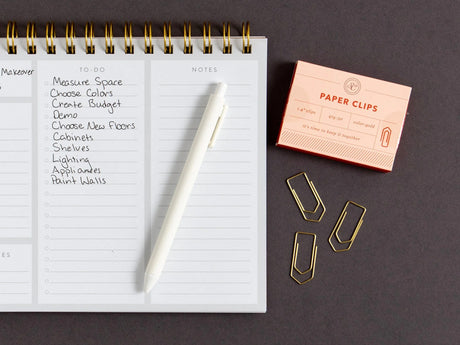 Makeover
TO-DO
Measure Space
Choose Colors
Create Budget
Demo
Choose New Floors
Cabinets
Shelves
Lighting
Appliances
Paint Walls
NOTES
PAPER CLIPS
it's time to keep it together